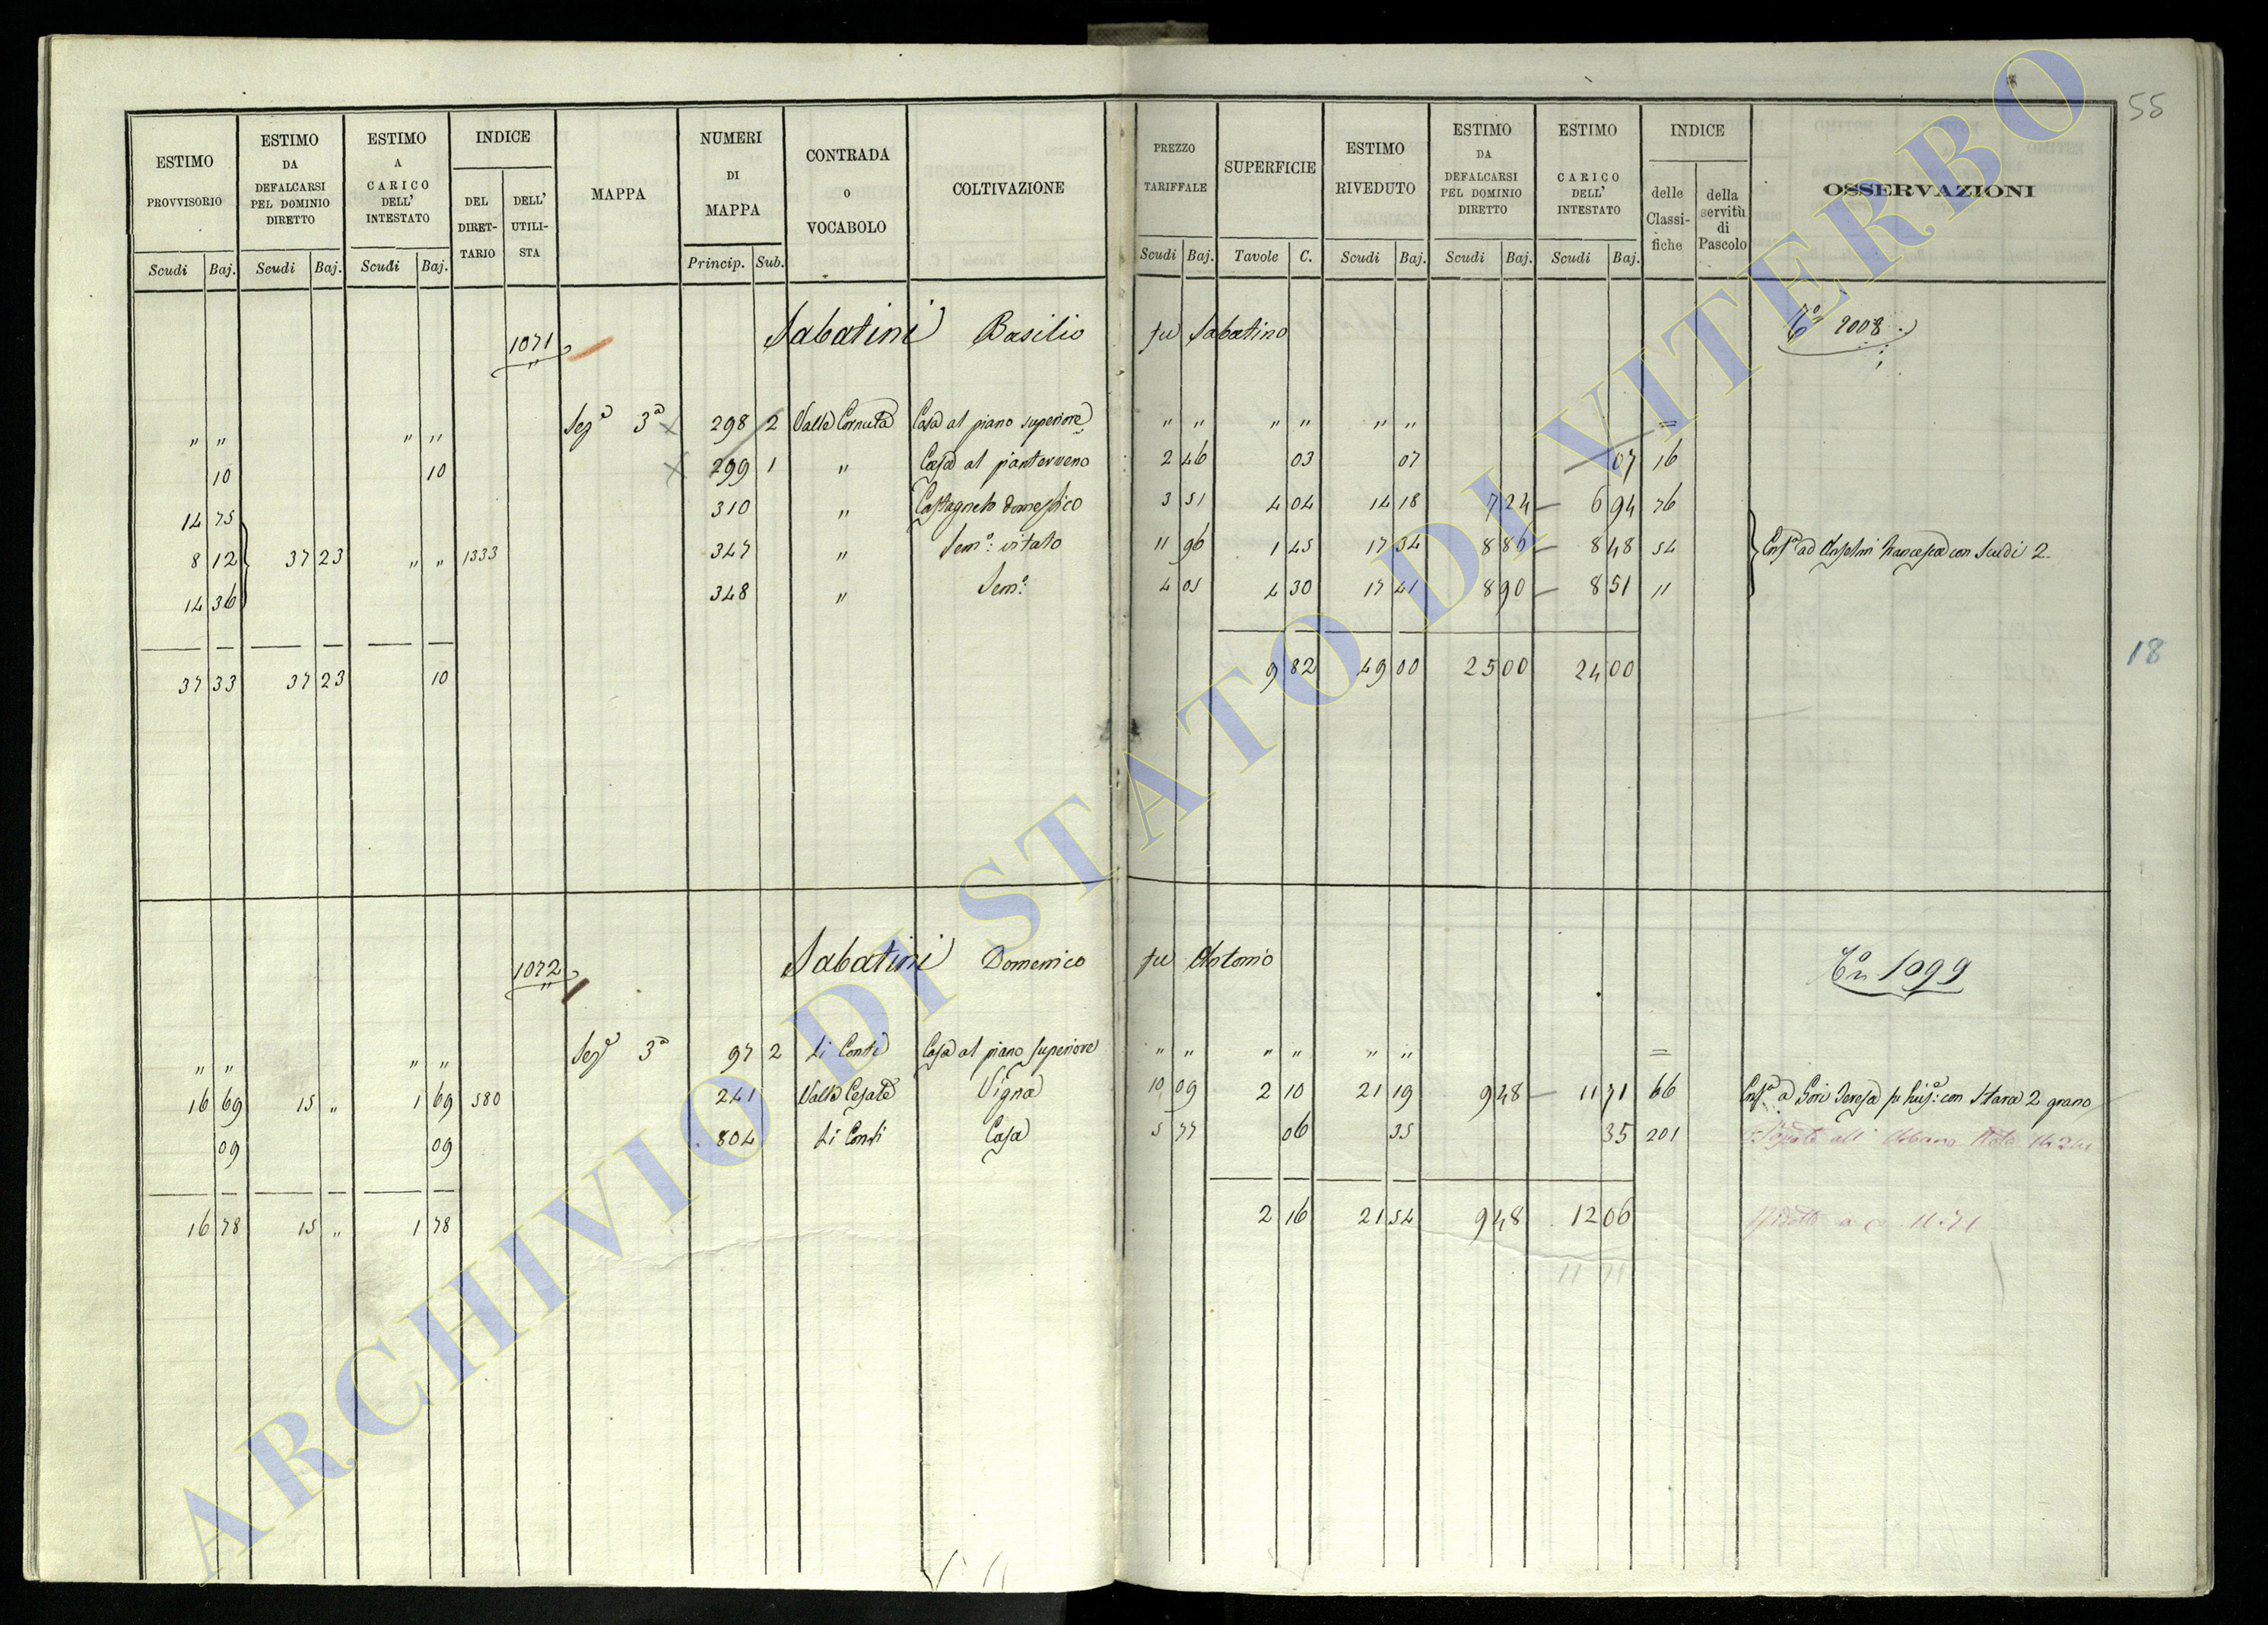 55
ESTIMO PROVVISORIO
ESTIMO DA DEFALCARSI PEL DOMINIO DIRETTO
ESTIMO A CARICO DELL' INTESTATO
INDICE
DEL DIRET-TARIO
DELL' UTILI-STA
MAPPA
NUMERI DI MAPPA
CONTRADA O VOCABOLO
COLTIVAZIONE
PREZZO TARIFFALE
SUPERFICIE
ESTIMO RIVEDUTO
ESTIMO DA DEFALCARSI PEL DOMINIO DIRETTO
ESTIMO A CARICO DELL' INTESTATO
INDICE
delle Classi-fiche
della servitù di Pascolo
OSSERVAZIONI
Scudi Baj. Scudi Baj. Scudi Baj. Princip. Sub. Scudi Baj. Tavole C. Scudi Baj. Scudi Baj. Scudi Baj.
1071 Sabatini Basilio fu Sabatino 2008
" " " " Sezª 3ª 298 2 Valle Cornuta Casa al piano superiore " " " " " " =
10 10 299 1 " Casa al pianterreno 2 46 03 07 07 16
14 75 310 " Castagneto domestico 3 51 4 04 14 18 7 24 6 94 76
8 12 37 23 " " 1333 347 " Semº: vitato 11 96 1 45 17 34 8 86 8 48 54 ad Anselmi Francesca con Scudi 2
14 36 348 " Semº: 4 05 4 30 17 41 8 90 8 51 11
37 33 37 23 10 9 82 49 00 25 00 24 00
18
1072 Sabatini Domenico fu Antonio 1099
" " " " Sezª 3ª 97 2 Li Conti Casa al piano superiore " " " " " " =
16 69 15 " 1 69 580 241 Valle Cesata Vigna 10 09 2 10 21 19 9 48 11 71 66 a Gori Teresa con Stara 2 grano
09 09 804 Li Conti Casa 5 77 06 35 35 201
16 78 15 " 1 78 2 16 21 54 9 48 12 06 11.71
11 11
ARCHIVIO DI STATO DI VITERBO